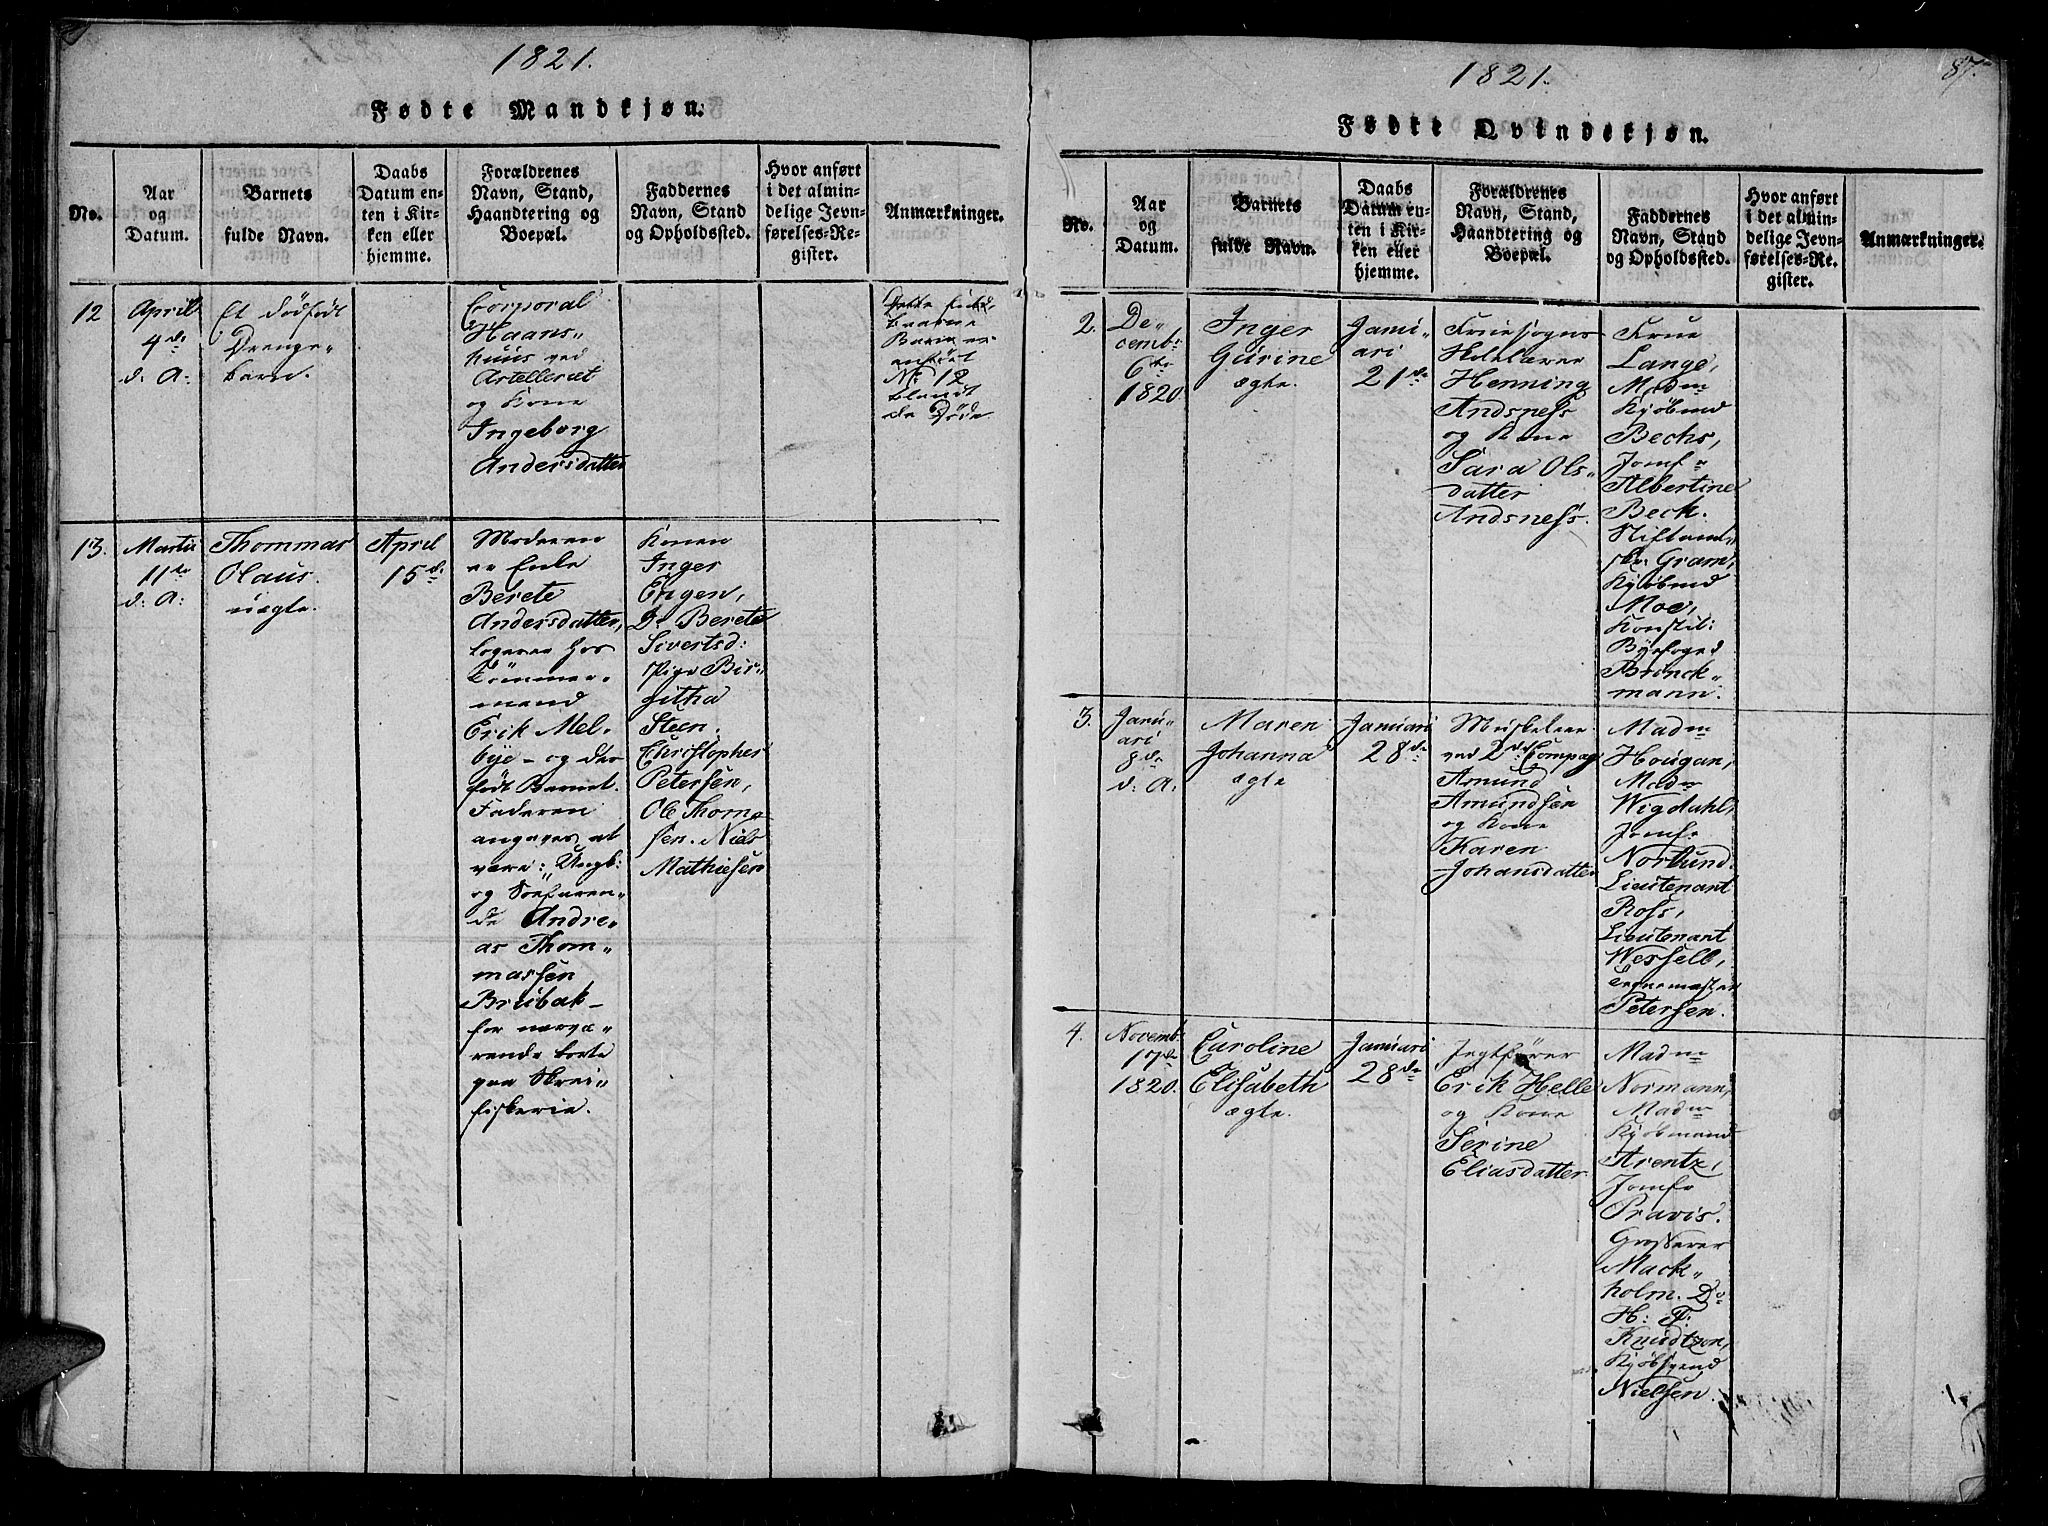 1821.
Fødte Mandkjøn.
No.
Aar
og
Datum.
Barnets
fulde Navn.
Daabs
Datum en-
ten i Kir-
ken eller
hjemme.
Forældrenes
Navn, Stand,
Haandtering og
Boepæl.
Faddernes
Navn, Stand
og Opholdssted.
Hvor anført
i det almin-
delige Jevn-
førelses-Re-
gister.
Anmærkninger.
12
April
4de
d: A:
Et dødfødt
Drenge-
barn.
Corporal
Haans-
huus ved
Artelleriet
og Kone
Ingeborg
Andersdatter
Dette
Barn er
anført
No 12
blandt
de Døde
13.
Martii
11te
d: A:
Thommas
Olaus.
uægte.
April
15de
Moderen
er Enke
Berete
Andersdatter,
logerer hos
Tømmer-
mand
Erik Mel-
bye - og der
født Barnet.
Faderen
angaves at
være: Ungk:
og Søefaren-
de Andre-
as Thom-
massen
Brubak-
for nærvæ-
rende borte
paa Skrei-
fiskerie.
Konen
Inger
Engen,
Do Berete
Sivertsd:
Pige Bir-
githa
Steen.
Christopher
Petersen,
Ole Thom-
sen. Niels
Mathiesen
1821.
87.
Fødte Qvindekjøn.
No.
Aar
og
Datum.
Barnets
fulde Navn.
Daabs
Datum en-
ten i Kir-
ken eller
hjemme.
Forældrenes
Navn, Stand,
Haandtering og
Boepæl.
Faddernes
Navn, Stand
og Opholdssted.
Hvor anført
i det almin-
delige Jevn-
førelses-Re-
gister.
Anmærkninger.
2.
De-
cembr
6te
1820.
Inger
Gurine
ægte.
Janu-
ari
21de
Henning
Andsness
og Kone
Sara Ols-
datter
Andsness.
Frue
Lange,
Madm
Kjøbmd
Bechs,
Jomfr
Albertine
Beck.
Gram,
Kjøbmd
Moe,
Konstit:
Byefoged
Brinck-
mann.
3.
Janu-
ari
8de
d: A:
Maren
Johanna
ægte
Januari
28de
Musketeer
ved 2det Compag
Amund
Amundsen
og Kone
Karen
Johansdatter
Madm
Hougan,
Madm
Wigdahl,
Jomfr
Norlund.
Lieutenant
Ross,
Lieutenant
Wessell,
Petersen.
4.
Novembr
17de
1820.
Caroline
Elisabeth
ægte.
Januari
28de
Jegtfører
Erik Helle
og Kone
Serine
Eliasdatter
Madm
Normann,
Madm
Kjøbmand
Arentz,
Jomfr
Pravis.
Grosserer
Mack-
holm. Do
H: T:
Knudtzon,
Kjøbsvend
Nielsen.